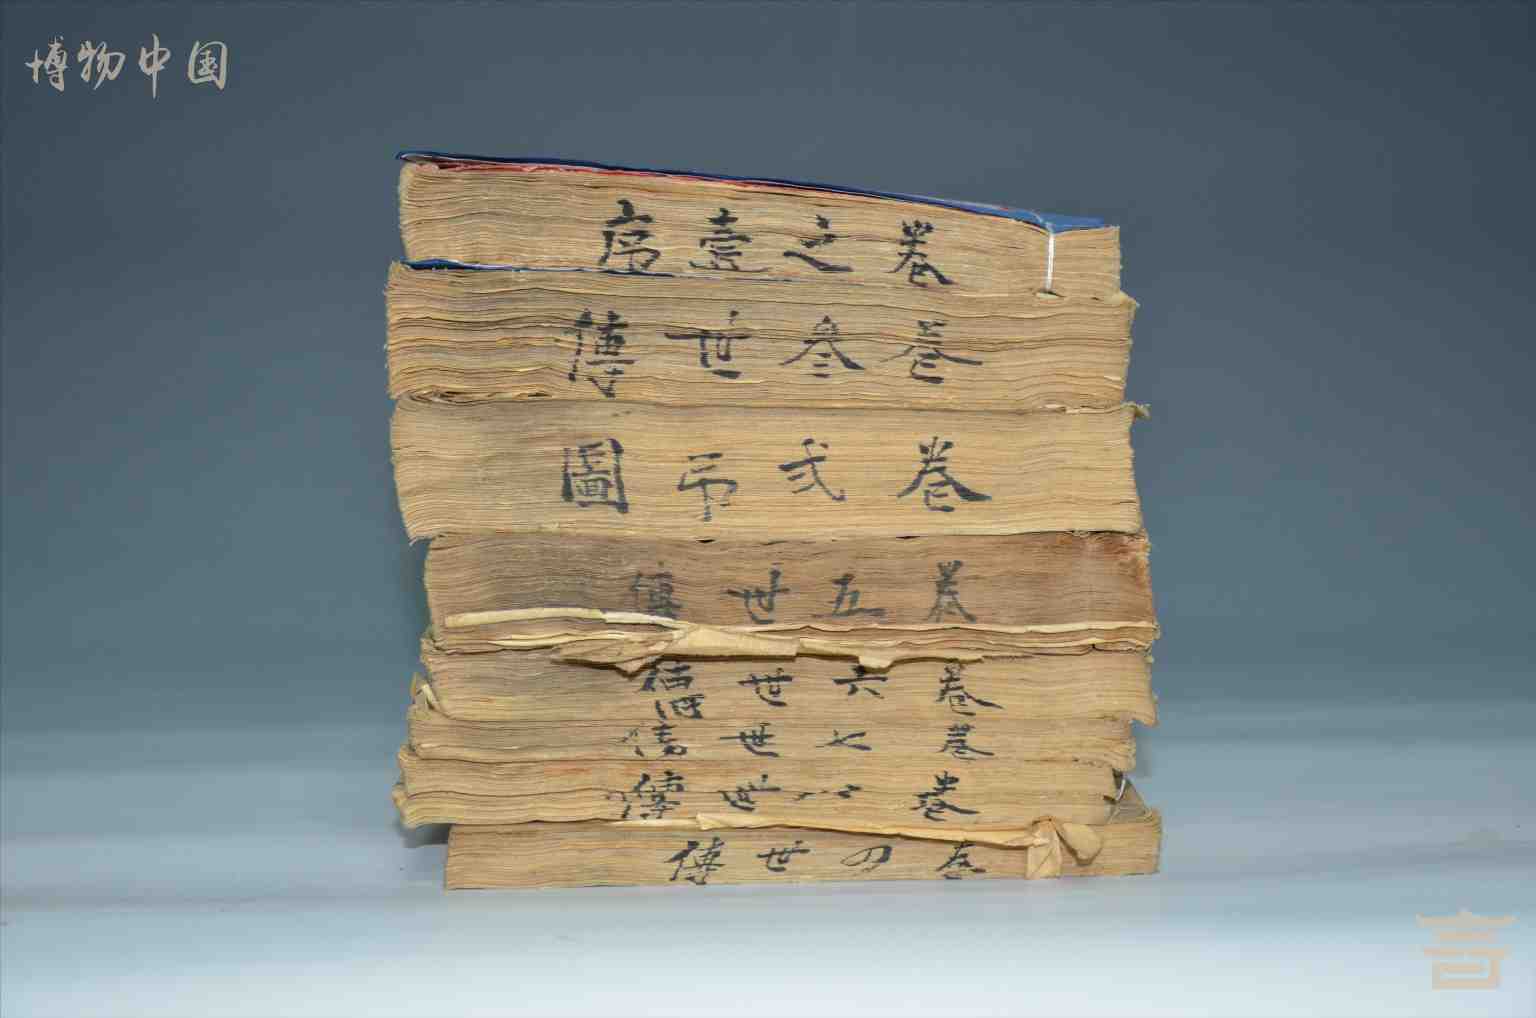 博物中国
卷之壹序
卷叁世傳
卷弍吊圖
卷五世傳
卷六世傳
卷七世傳
卷八世傳
卷四世傳